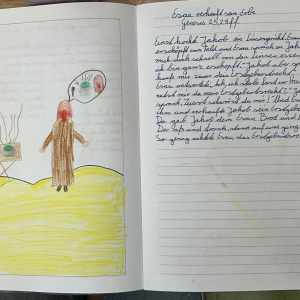 Esau verkauft sein Erbe
Genesis 25,29ff
Einst kocht Jakob ein Linsengericht.
erschöpft vom Feld und Esau sprach zu Jakob
mich doch schnell von den Linsen essen
ich bin ganz erschöpft." Jakob aber sp
kaufe mir zuvor dein Erstgeburtsrecht
Esau antwortete: Ach, ich
mir da mein Erstgeburtsrecht?" Ja
sprach: Zuerst schwörst du mir! Und E
ihm und verkaufte Jakob sein Erstgebu
Da gab Jakob dem Esau Brot und
Der aß und trank, stand auf und ging
So gering achtete Esau das Erstgeburtsre